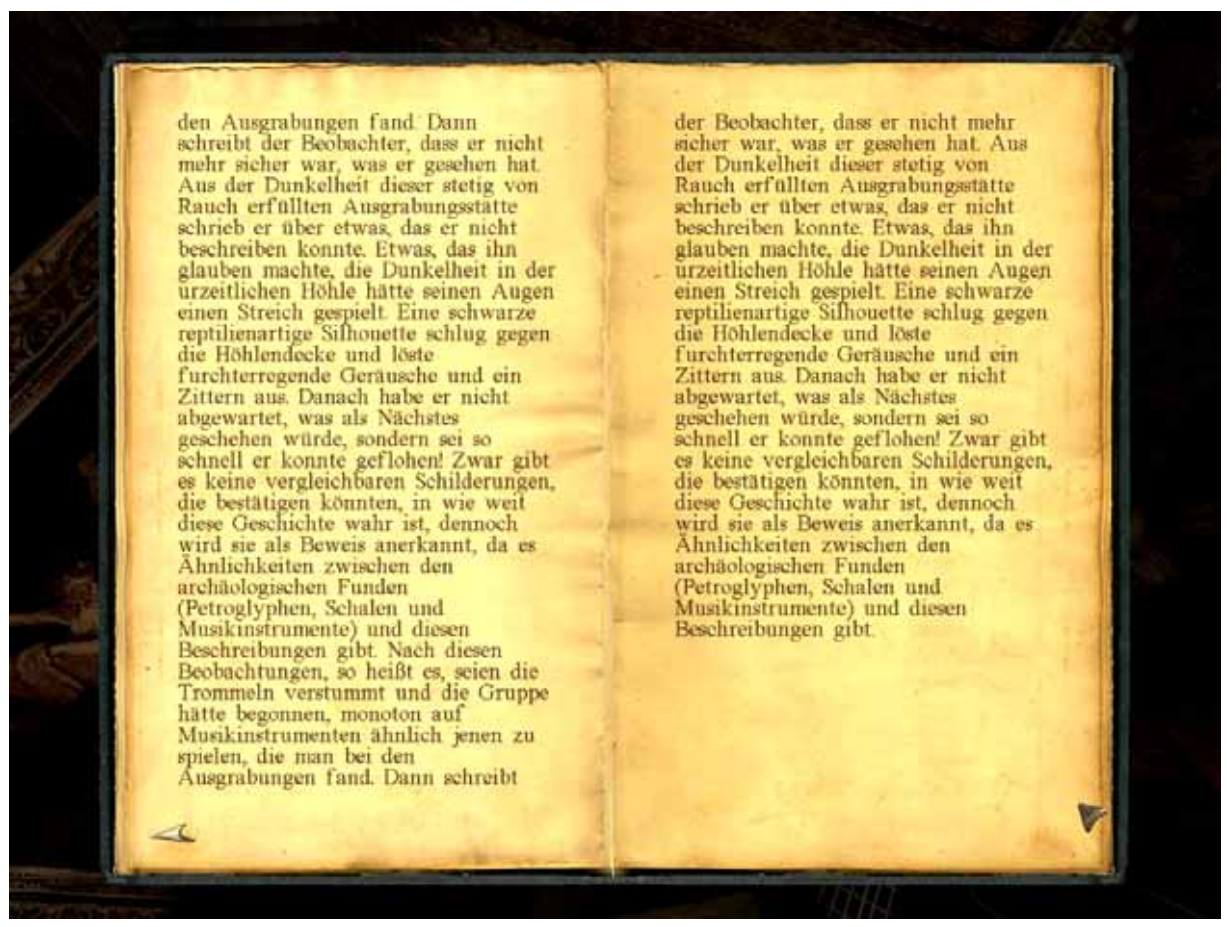 den Ausgrabungen fand. Dann
schreibt der Beobachter, dass er nicht
mehr sicher war, was er gesehen hat.
Aus der Dunkelheit dieser stetig von
Rauch erfüllten Ausgrabungsstätte
schrieb er über etwas, das er nicht
beschreiben konnte. Etwas, das ihn
glauben machte, die Dunkelheit in der
urzeitlichen Höhle hätte seinen Augen
einen Streich gespielt. Eine schwarze
reptilienartige Silhouette schlug gegen
die Höhlendecke und löste
furchterregende Geräusche und ein
Zittern aus. Danach habe er nicht
abgewartet, was als Nächstes
geschehen würde, sondern sei so
schnell er konnte geflohen! Zwar gibt
es keine vergleichbaren Schilderungen,
die bestätigen könnten, in wie weit
diese Geschichte wahr ist, dennoch
wird sie als Beweis anerkannt, da es
Ähnlichkeiten zwischen den
archäologischen Funden
(Petroglyphen, Schalen und
Musikinstrumente) und diesen
Beschreibungen gibt. Nach diesen
Beobachtungen, so heißt es, seien die
Trommeln verstummt und die Gruppe
hätte begonnen, monoton auf
Musikinstrumenten ähnlich jenen zu
spielen, die man bei den
Ausgrabungen fand. Dann schreibt
der Beobachter, dass er nicht mehr
sicher war, was er gesehen hat. Aus
der Dunkelheit dieser stetig von
Rauch erfüllten Ausgrabungsstätte
schrieb er über etwas, das er nicht
beschreiben konnte. Etwas, das ihn
glauben machte, die Dunkelheit in der
urzeitlichen Höhle hätte seinen Augen
einen Streich gespielt. Eine schwarze
reptilienartige Silhouette schlug gegen
die Höhlendecke und löste
furchterregende Geräusche und ein
Zittern aus. Danach habe er nicht
abgewartet, was als Nächstes
geschehen würde, sondern sei so
schnell er konnte geflohen! Zwar gibt
es keine vergleichbaren Schilderungen,
die bestätigen könnten, in wie weit
diese Geschichte wahr ist, dennoch
wird sie als Beweis anerkannt, da es
Ähnlichkeiten zwischen den
archäologischen Funden
(Petroglyphen, Schalen und
Musikinstrumente) und diesen
Beschreibungen gibt.